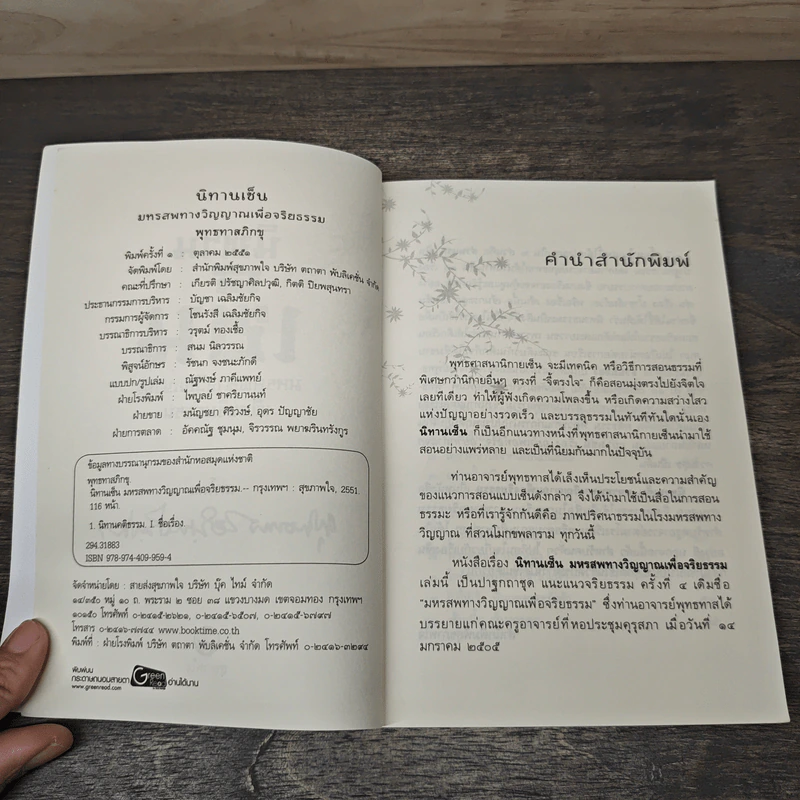 นิทานเซ็น
มหรสพทางวิญญาณเพื่อจริยธรรม
พุทธทาสภิกขุ
พิมพ์ครั้งที่ ๑ : ตุลาคม ๒๕๕๑
จัดพิมพ์โดย : สำนักพิมพ์สุขภาพใจ บริษัท ตถาตา พับลิเคชั่น จำกัด
คณะที่ปรึกษา : เกียรติ ปรัชญาศิลปวุฒิ, กิตติ ปิยพสุนทรา
ประธานกรรมการบริหาร : บัญชา เฉลิมชัยกิจ
กรรมการผู้จัดการ : โชนรังสี เฉลิมชัยกิจ
บรรณาธิการบริหาร : วรุตม์ ทองเชื้อ
บรรณาธิการ : สนม นิลวรรณ
พิสูจน์อักษร : รัชนก จงชนะภักดี
แบบปก/รูปเล่ม : ณัฐพงษ์ ภาคีแพทย์
ฝ่ายโรงพิมพ์ : ไพบูลย์ ชาครียานนท์
ฝ่ายขาย : มนัญชยา ศิริวงษ์, อุดร ปัญญาชัย
ฝ่ายการตลาด : อัคคณัฐ ชุมนุม, จิรวรรณ พยาฆรินทรังกูร
ข้อมูลทางบรรณานุกรมของสำนักหอสมุดแห่งชาติ
พุทธทาสภิกขุ
นิทานเซ็น มหรสพทางวิญญาณเพื่อจริยธรรม.-- กรุงเทพฯ : สุขภาพใจ, 2551.
116 หน้า.
1. นิทานคติธรรม. I. ชื่อเรื่อง.
294.31883
ISBN 978-974-409-959-4
จัดจำหน่ายโดย : สายส่งสุขภาพใจ บริษัท บุ๊ค ไทม์ จำกัด
๑๔/๓๕๐ หมู่ ๑๐ ถ. พระราม ๒ ซอย ๓๘ แขวงบางมด เขตจอมทอง กรุงเทพฯ
๑๐๑๕๐ โทรศัพท์ ๐-๒๔๑๕-๒๖๒๑, ๐-๒๔๑๕-๖๕๐๗, ๐-๒๔๑๕-๖๗๙๗
โทรสาร ๐-๒๔๑๖-๗๗๔๔ www.booktime.co.th
พิมพ์ที่ : ฝ่ายโรงพิมพ์ บริษัท ตถาตา พับลิเคชั่น จำกัด โทรศัพท์ ๐-๒๔๑๖-๓๒๙๔
พิมพ์บน
กระดาษถนอมสายตา Green Read อ่านได้นาน
www.greenread.com
คำนำสำนักพิมพ์
พุทธศาสนานิกายเซ็น จะมีเทคนิค หรือวิธีการสอนธรรมที่
พิเศษกว่านิกายอื่นๆ ตรงที่ "จี้ตรงใจ" ก็คือสอนมุ่งตรงไปยังจิตใจ
เลยทีเดียว ทำให้ผู้ฟังเกิดความโพลงขึ้น หรือเกิดความสว่างไสว
แห่งปัญญาอย่างรวดเร็ว และบรรลุธรรมในทันทีทันใดนั่นเอง
นิทานเซ็น ก็เป็นอีกแนวทางหนึ่งที่พุทธศาสนานิกายเซ็นนำมาใช้
สอนอย่างแพร่หลาย และเป็นที่นิยมกันมากในปัจจุบัน
ท่านอาจารย์พุทธทาสได้เล็งเห็นประโยชน์และความสำคัญ
ของแนวการสอนแบบเซ็นดังกล่าว จึงได้นำมาใช้เป็นสื่อในการสอน
ธรรมะ หรือที่เรารู้จักกันดีคือ ภาพปริศนาธรรมในโรงมหรสพทาง
วิญญาณ ที่สวนโมกขพลาราม ทุกวันนี้
หนังสือเรื่อง นิทานเซ็น มหรสพทางวิญญาณเพื่อจริยธรรม
เล่มนี้ เป็นปาฐกถาชุด แนะแนวจริยธรรม ครั้งที่ ๔ เดิมชื่อ
"มหรสพทางวิญญาณเพื่อจริยธรรม" ซึ่งท่านอาจารย์พุทธทาสได้
บรรยายแก่คณะครูอาจารย์ที่หอประชุมคุรุสภา เมื่อวันที่ ๑๔
มกราคม ๒๕๐๕